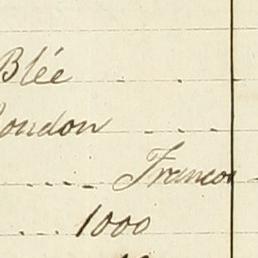 Blée
oudon
Francon
1000